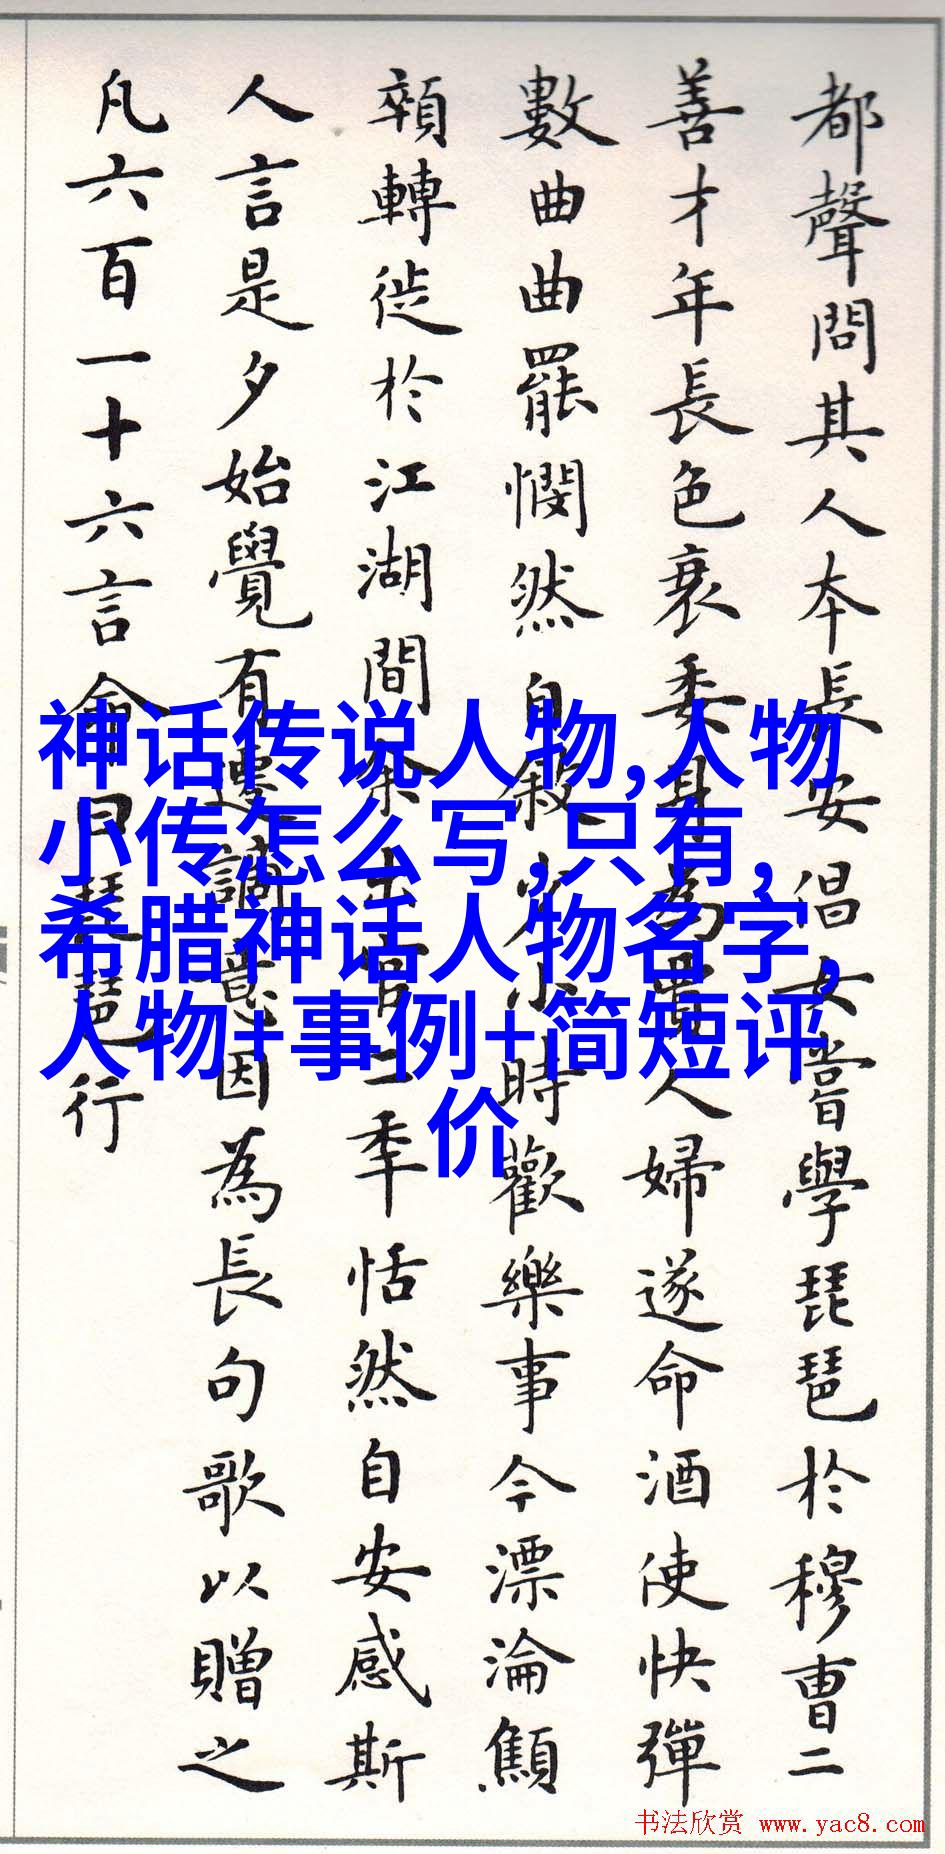 都聲問其人本長安倡女嘗學琵琶於穆曹二
善才年長色衰委身為賈人婦遂命酒使快彈
數曲曲罷憫然自敘少小時歡樂事今漂淪顦
顇轉徙於江湖間余出官二年恬然自安感斯
人言是夕始覺有遷謫意因為長句歌以贈之
凡六百一十六言命曰琵琶行
神话传说人物,人物
小传怎么写,只有,
希腊神话人物名字,
人物+事例+简短评
价
书法欣赏 www.yac8.com